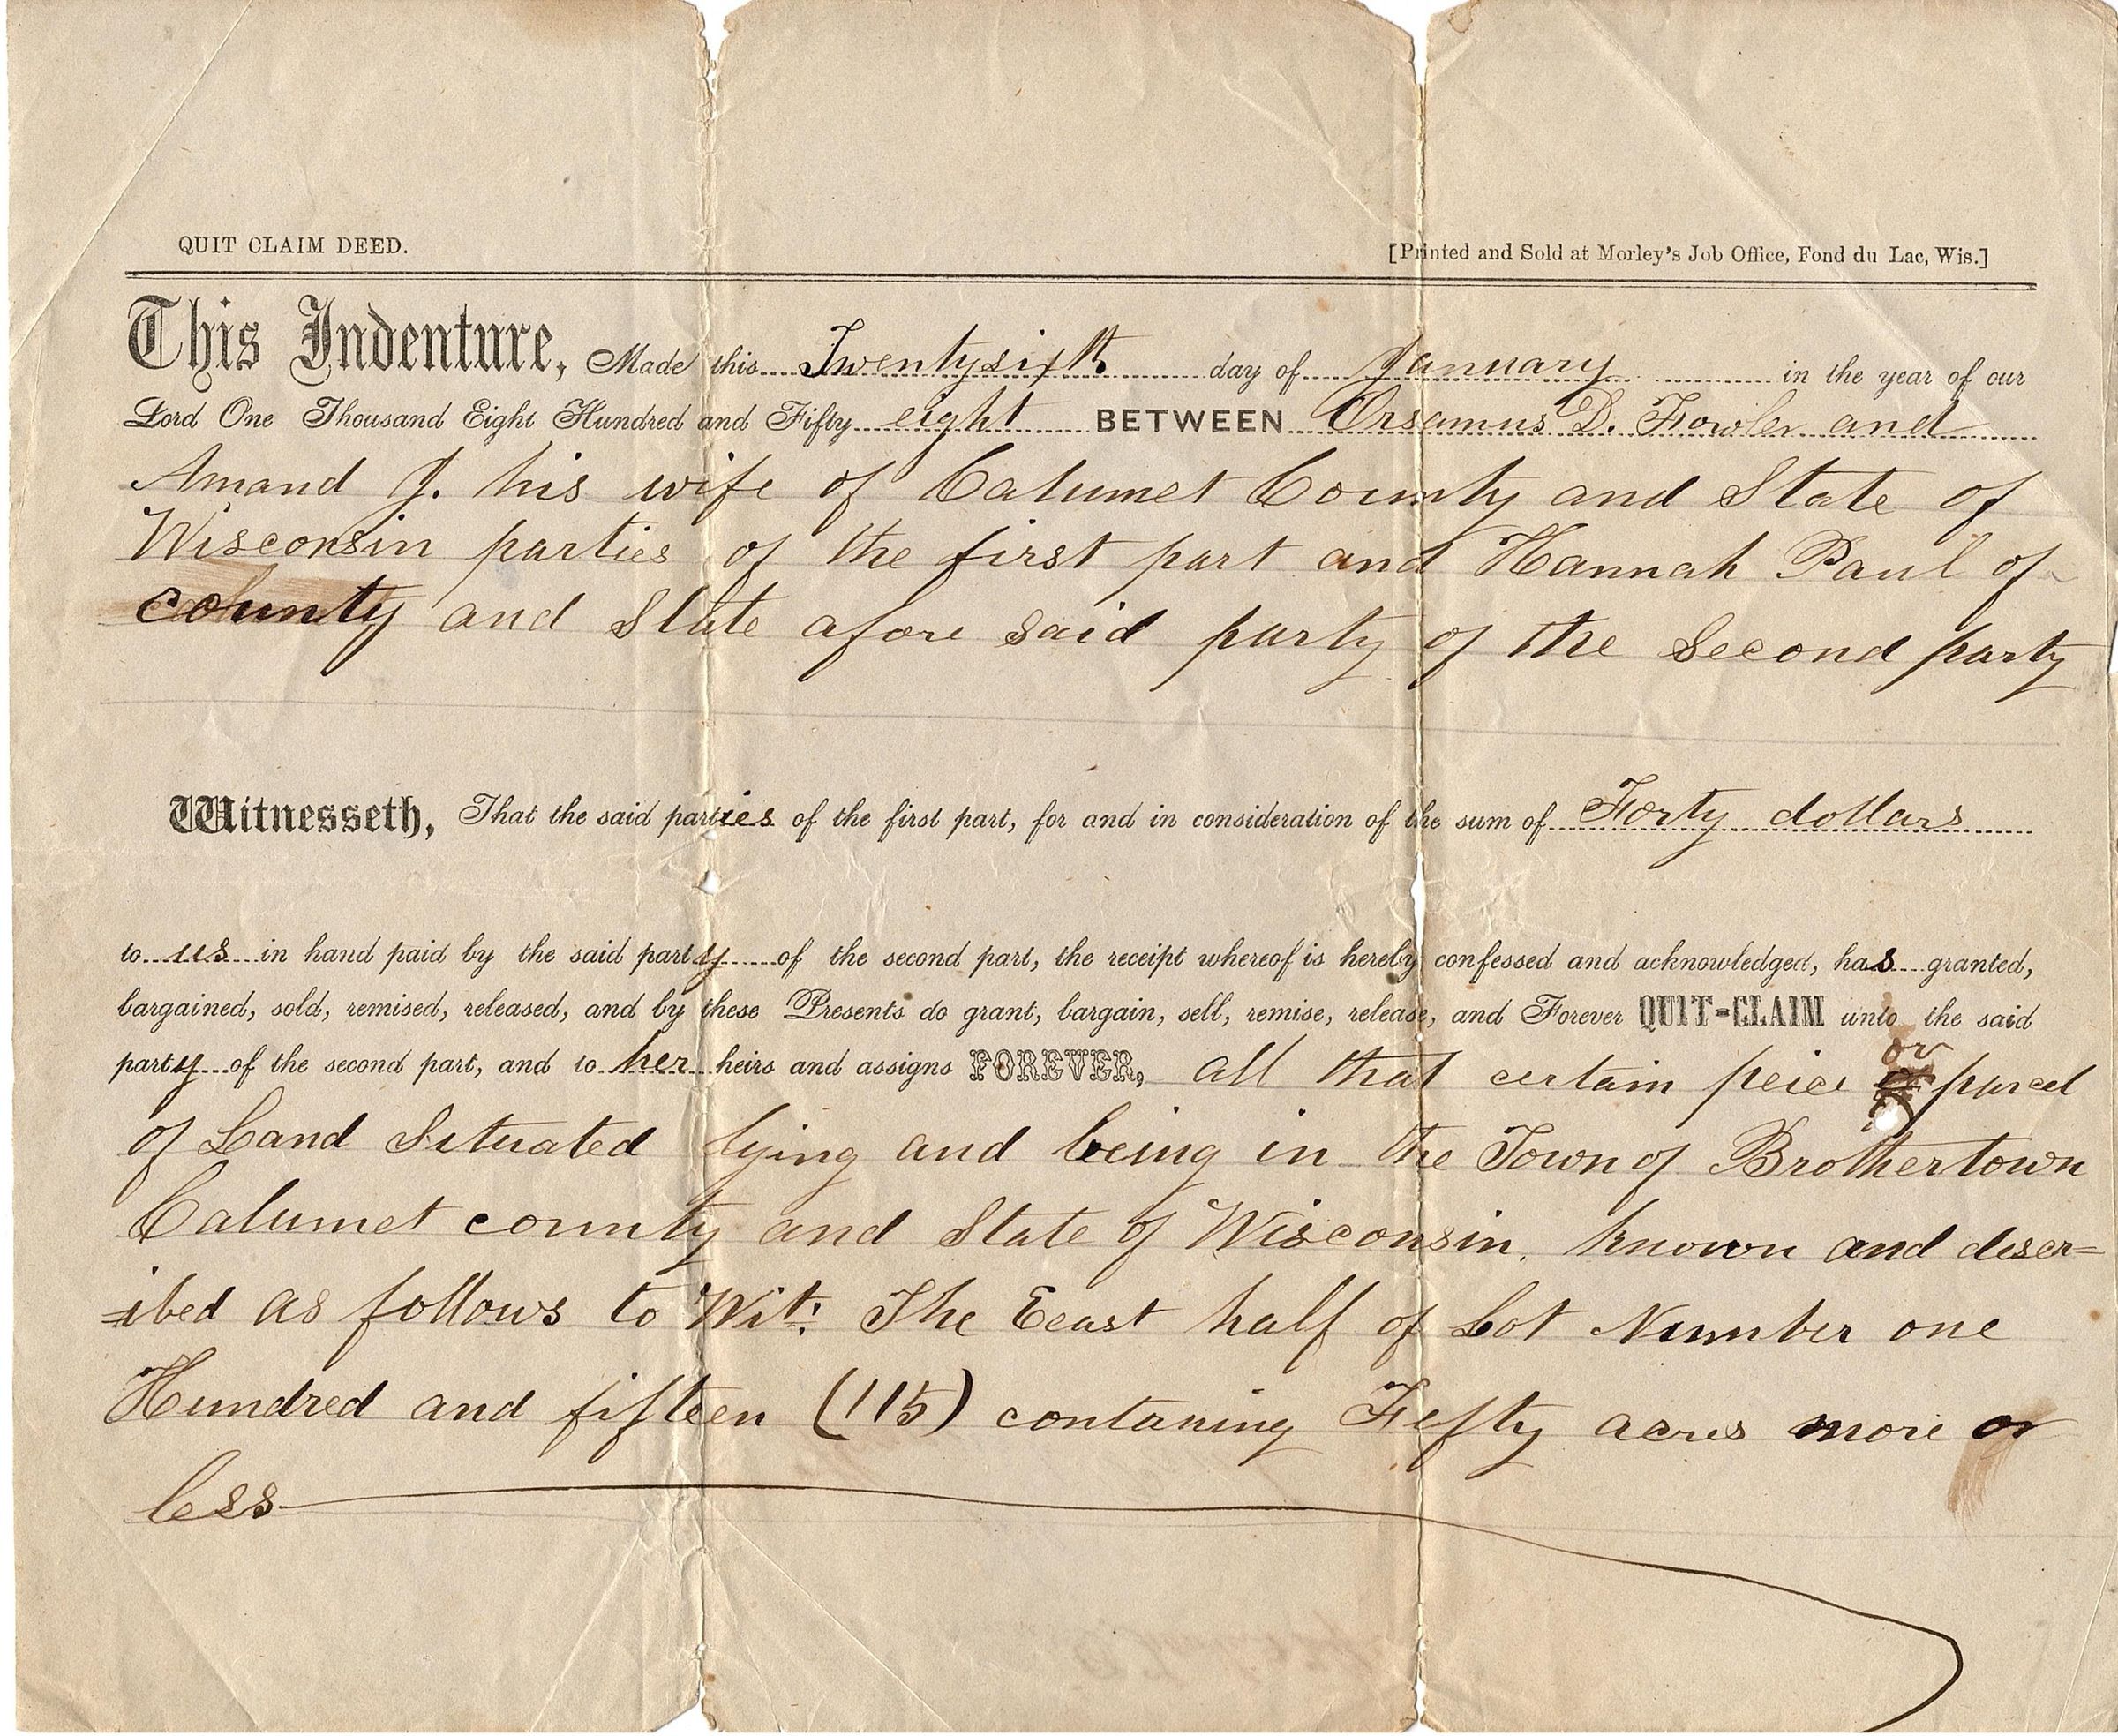 QUIT CLAIM DEED.
[Printed and Sold at Morley's Job Office, Fond du Lac, Wis.]
This Indenture, Made this Twentysixth day of January in the year of our
Lord One Thousand Eight Hundred and Fifty eight BETWEEN Orsamus D. Fowler and
Amand J. his wife of Calumet County and State of
Wisconsin parties of the first part and Hannah Paul of
county and State afore said party of the Second party
Witnesseth, That the said parties of the first part, for and in consideration of the sum of Forty dollars
to us in hand paid by the said party of the second part, the receipt whereof is hereby confessed and acknowledged, has granted,
bargained, sold, remised, released, and by these Presents do grant, bargain, sell, remise, release, and Forever QUIT-CLAIM unto the said
party of the second part, and to her heirs and assigns FOREVER, all that certain peice or parcel
of Land Situated lying and being in the Town of Brothertown
Calumet county and State of Wisconsin, known and descr=
=ibed as follows to Wit: The Eeast half of Lot Number one
Hundred and fifteen (115) contaning Fefty acres more or
less